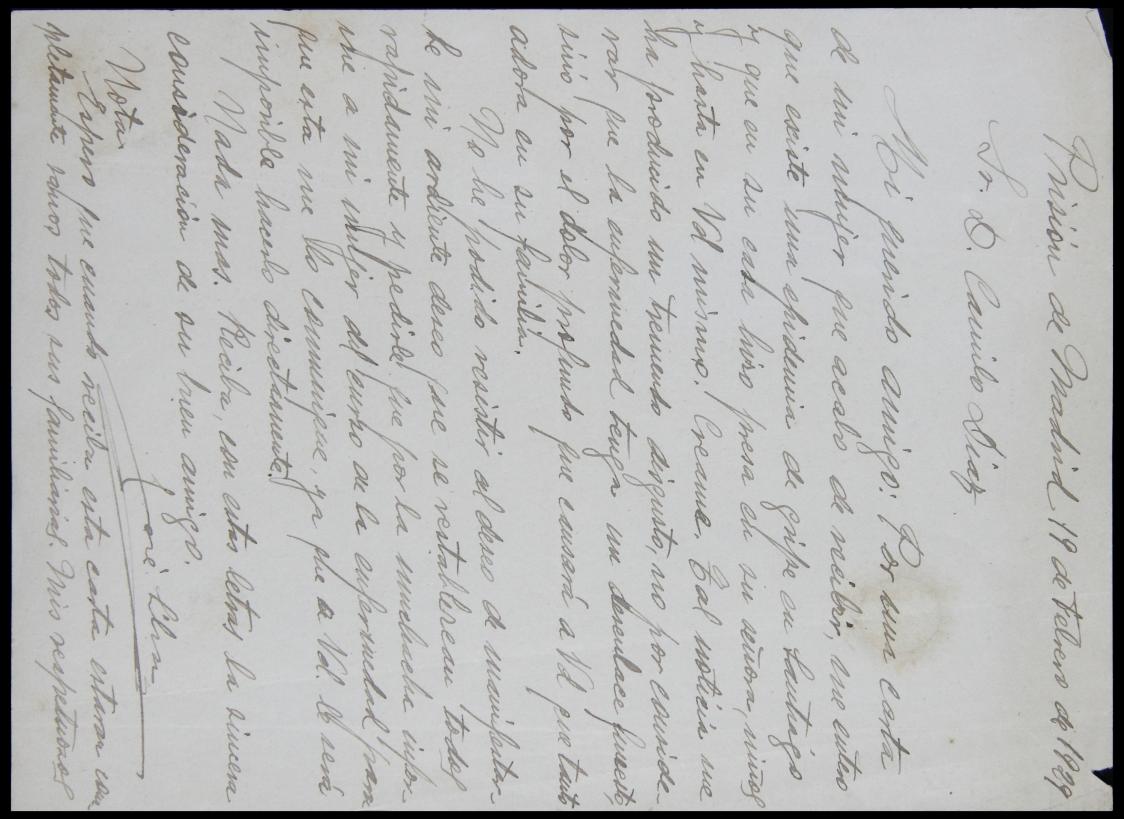 Prisión de Madrid 19 de Febrero de 1929
Sr. D. Camilo Díaz
Mi querido amigo: Por una carta
de mi mujer que acabo de recibir, me entero
que existe una epidemia de gripe en Santiago
y que en su casa hizo presa en su señora, niños
y hasta en Vd mismo. Creame. Tal noticia me
ha producido un tremendo disgusto, no por conside-
rar que la enfermedad tenga un desenlace funesto,
sinó por el dolor profundo que causará a Vd que tanto
adora en su familia.
No he podido resistir al deseo de manifestar-
le mi ardiente deseo que se restablezcan todos
rapidamente y pedirle que por la muchacha infor-
me a mi mujer del curso de la enfermedad para
que esta me lo comunique, ya que a Vd. le será
imposible hacerlo directamente.
Nada mas. Reciba, con estas letras la sincera
consideración de su buen amigo.
José
Nota
Espero que cuando reciba esta carta estaran com-
pletamente sanos todos sus familiares. Mis respetuosos